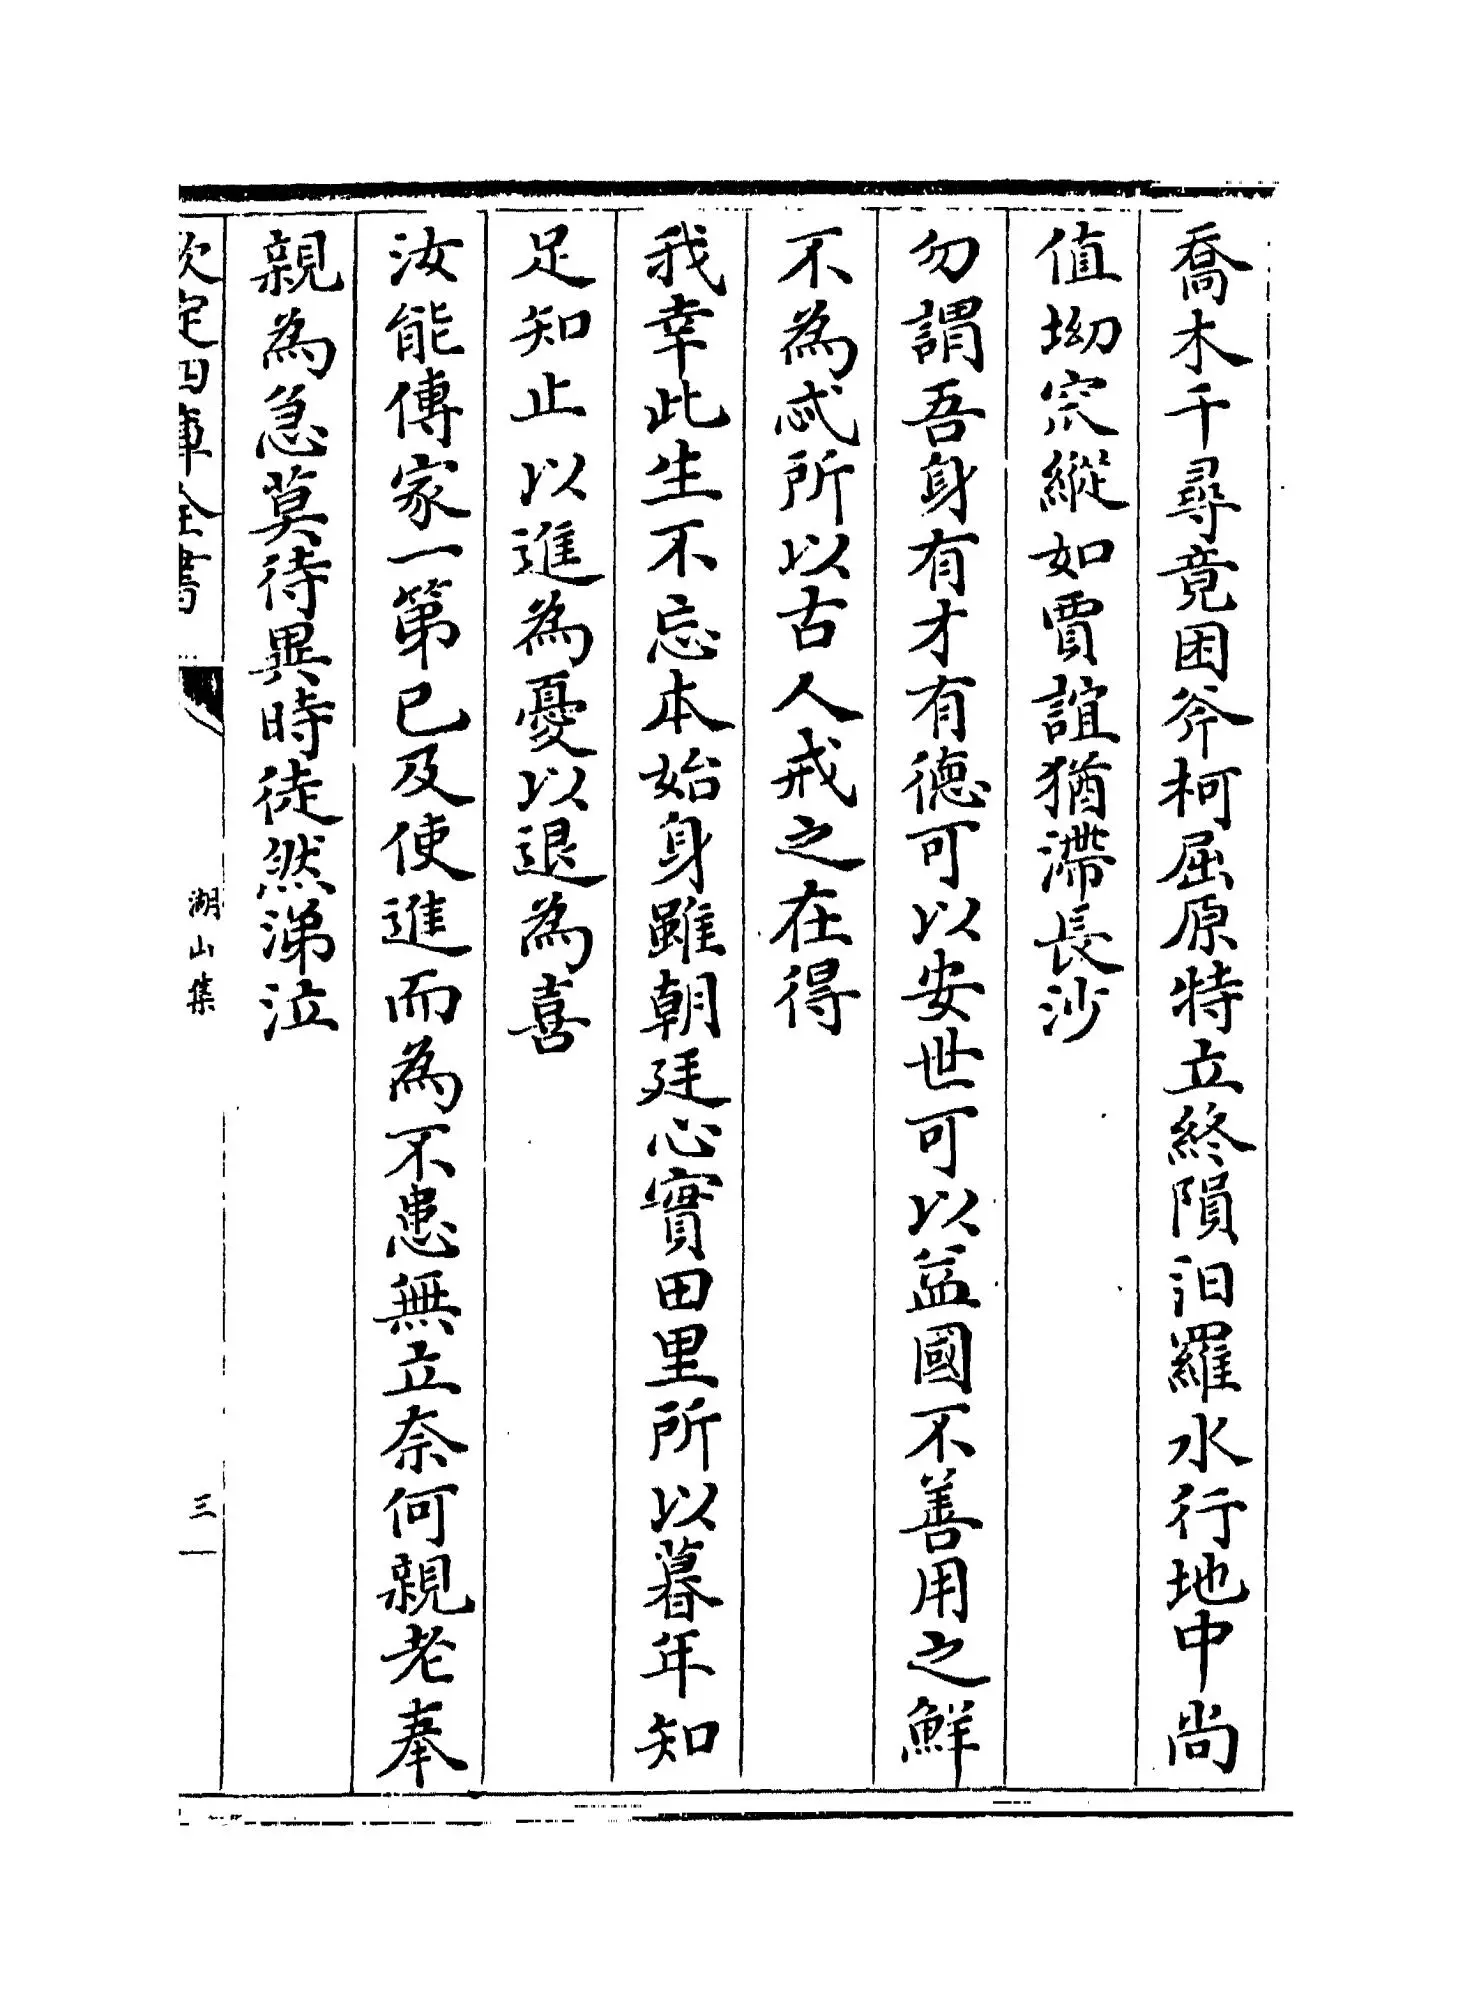 喬木千尋竟困斧柯屈原特立終隕汨羅水行地中尚
值坳宎縱如賈誼猶滯長沙
勿謂吾身有才有德可以安世可以益國不善用之鮮
不為忒所以古人戒之在得
我幸此生不忘本始身雖朝廷心實田里所以暮年知
足知止以進為憂以退為喜
汝能傳家一第已及使進而為不患無立奈何親老奉
親為急莫待異時徒然涕泣
欽定四庫全書
湖山集
三